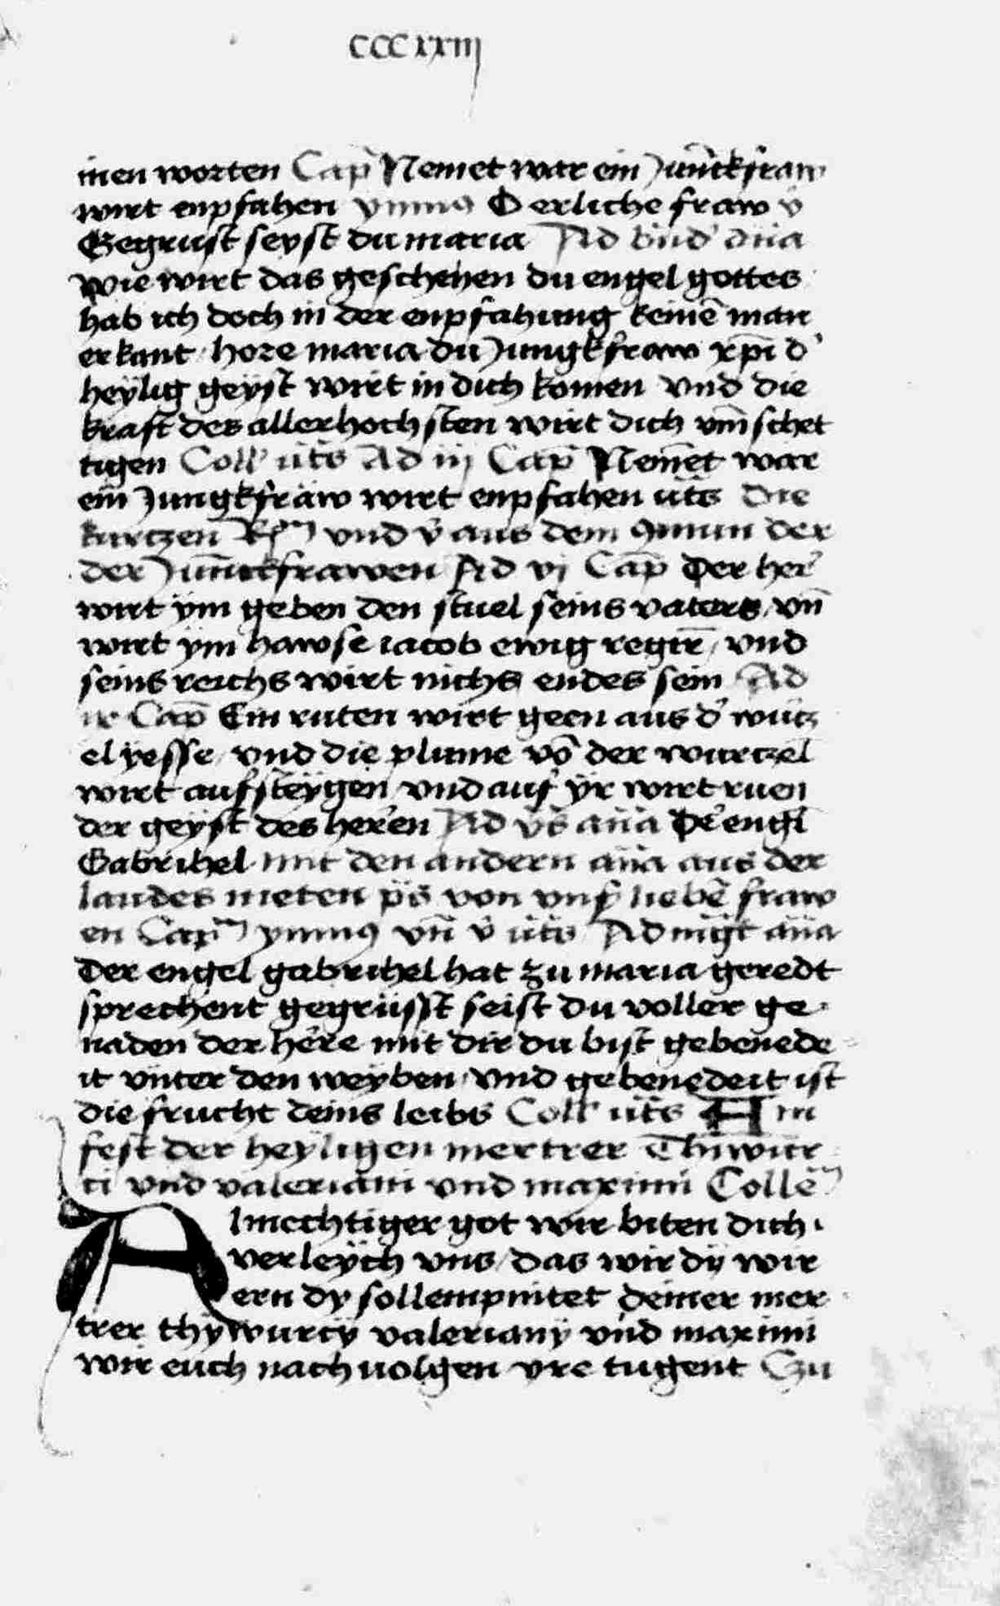 CCCxxiij
inen worten Cap̄ Nemet war ein Jūnckfraw
wirt enpfahen ymnꝰ O erliche fraw v̄
Gegrust seyst du maria Ad bn̄d' an̄a
wie wirt das geschehen du engel gottes
hab ich doch in der enpfahung keinē man
erkant hore maria du Jungkfraw xp̄i d'
heylig geyst wirt in dich komen vnd die
kraft des allerhochsten wirt dich vm̄schet
tigen Coll' ut̄s Ad iij Cap̄ Nemet war
ein Jungkfraw wirt enpfahen ut̄s Die
kurtzen R̄ vnd v̄ aus dem comun der
der Jūnckfrawen Ad vj Cap̄ Der her'
wirt ym geben den stuel seins vaters vn̄
wirt ym hawse iacob ewig regir̄ vnd
seins reichs wirt nichs endes sein Ad
ix Cap̄ Ein ruten wirt geen aus d' wurtz
el yesse vnd die plume vō der wurtzel
wirt aufsteygen vnd auf yr wirt ruen
der geyst des heren Ad v̄s an̄a D'engl
Gabrihel mit den andern an̄a aus der
laudes meten p̄s von vnß liebē fraw
en Cap̄ ymnꝰ vn̄ v̄ ut̄s Ad mg̃t an̄a
Der engel gabrihel hat zu maria geredt
sprechent gegrusst seist du voller ge
naden der here mit dir du bist gebenede
it vnter den weyben vnd gebenedeit ist
die frucht deins leibs Coll' ut̄s An
fest der heyligen mertrer Thiwur
ci vnd valeriani vnd maximi Collē
Almechtiger got wir biten dich
verleych vns das wir dy wir
ern dy sollempnitet deiner mer
trer thywurcy valeriany vnd maximi
wir euch nach uolgen yre tugent Zu